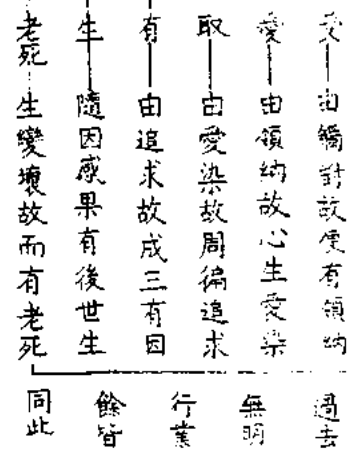 受 由觸對故便有領納
愛 由領納故心生愛染
取 由愛染故周徧追求
有 由追求故成三有因
生 隨因感果有後世生
老死 生變壞故而有老死
過去
無明
行業
餘皆
同此